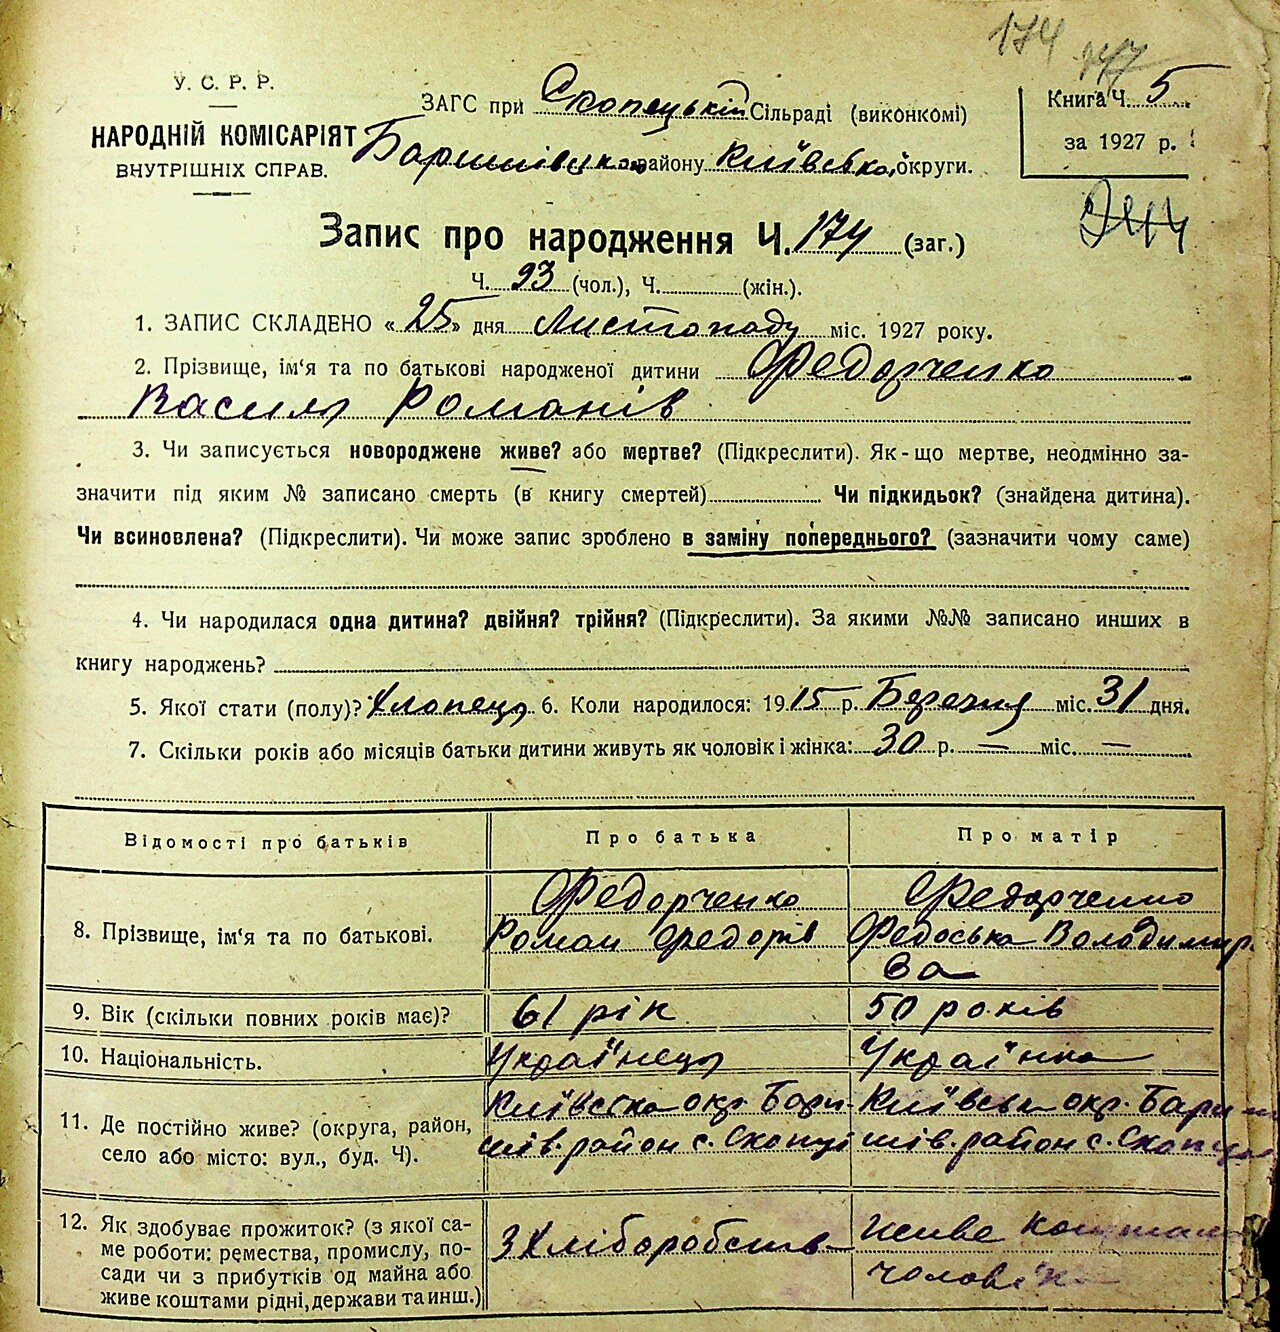 174 147
У. С. Р. Р.
НАРОДНІЙ КОМІСАРІЯТ
ВНУТРІШНІХ СПРАВ.
ЗАГС при Скопецькій Сільраді (виконкомі)
Баришівського району Київської округи.
Книга Ч. 5
за 1927 р.
244
Запис про народження Ч. 174 (заг.)
Ч. 93 (чол.), Ч. (жін.).
1. ЗАПИС СКЛАДЕНО « 25 » дня Листопаду міс. 1927 року.
2. Прізвище, ім‘я та по батькові народженої дитини Федорченко
Василь Романів
3. Чи записується новороджене живе? або мертве? (Підкреслити). Як-що мертве, неодмінно за-
значити під яким № записано смерть (в книгу смертей) Чи підкидьок? (знайдена дитина).
Чи всиновлена? (Підкреслити). Чи може запис зроблено в заміну попереднього? (зазначити чому саме)
4. Чи народилася одна дитина? двійня? трійня? (Підкреслити). За якими №№ записано инших в
книгу народжень?
5. Якої стати (полу)? Хлопець 6. Коли народилося: 1915 р. Березня міс. 31 дня.
7. Скільки років або місяців батьки дитини живуть як чоловік і жінка: 30 р. — міс. —
Відомості про батьків Про батька Про матір
8. Прізвище, ім‘я та по батькові.
Федорченко
Роман Федорів
Федорченко
Федоська Володимир.
ва
9. Вік (скільки повних років має)? 61 рік 50 років
10. Національність. Українець Українка
11. Де постійно живе? (округа, район,
село або місто: вул., буд. Ч).
Київська окр. Бари-
шів. район с. Скопці
Київська окр. Бари-
шів. район с. Скопці
12. Як здобуває прожиток? (з якої са-
ме роботи: ремества, промислу, по-
сади чи з прибутків од майна або
живе коштами рідні, держави та инш.)
З Хліборобства
живе коштами
чоловіка